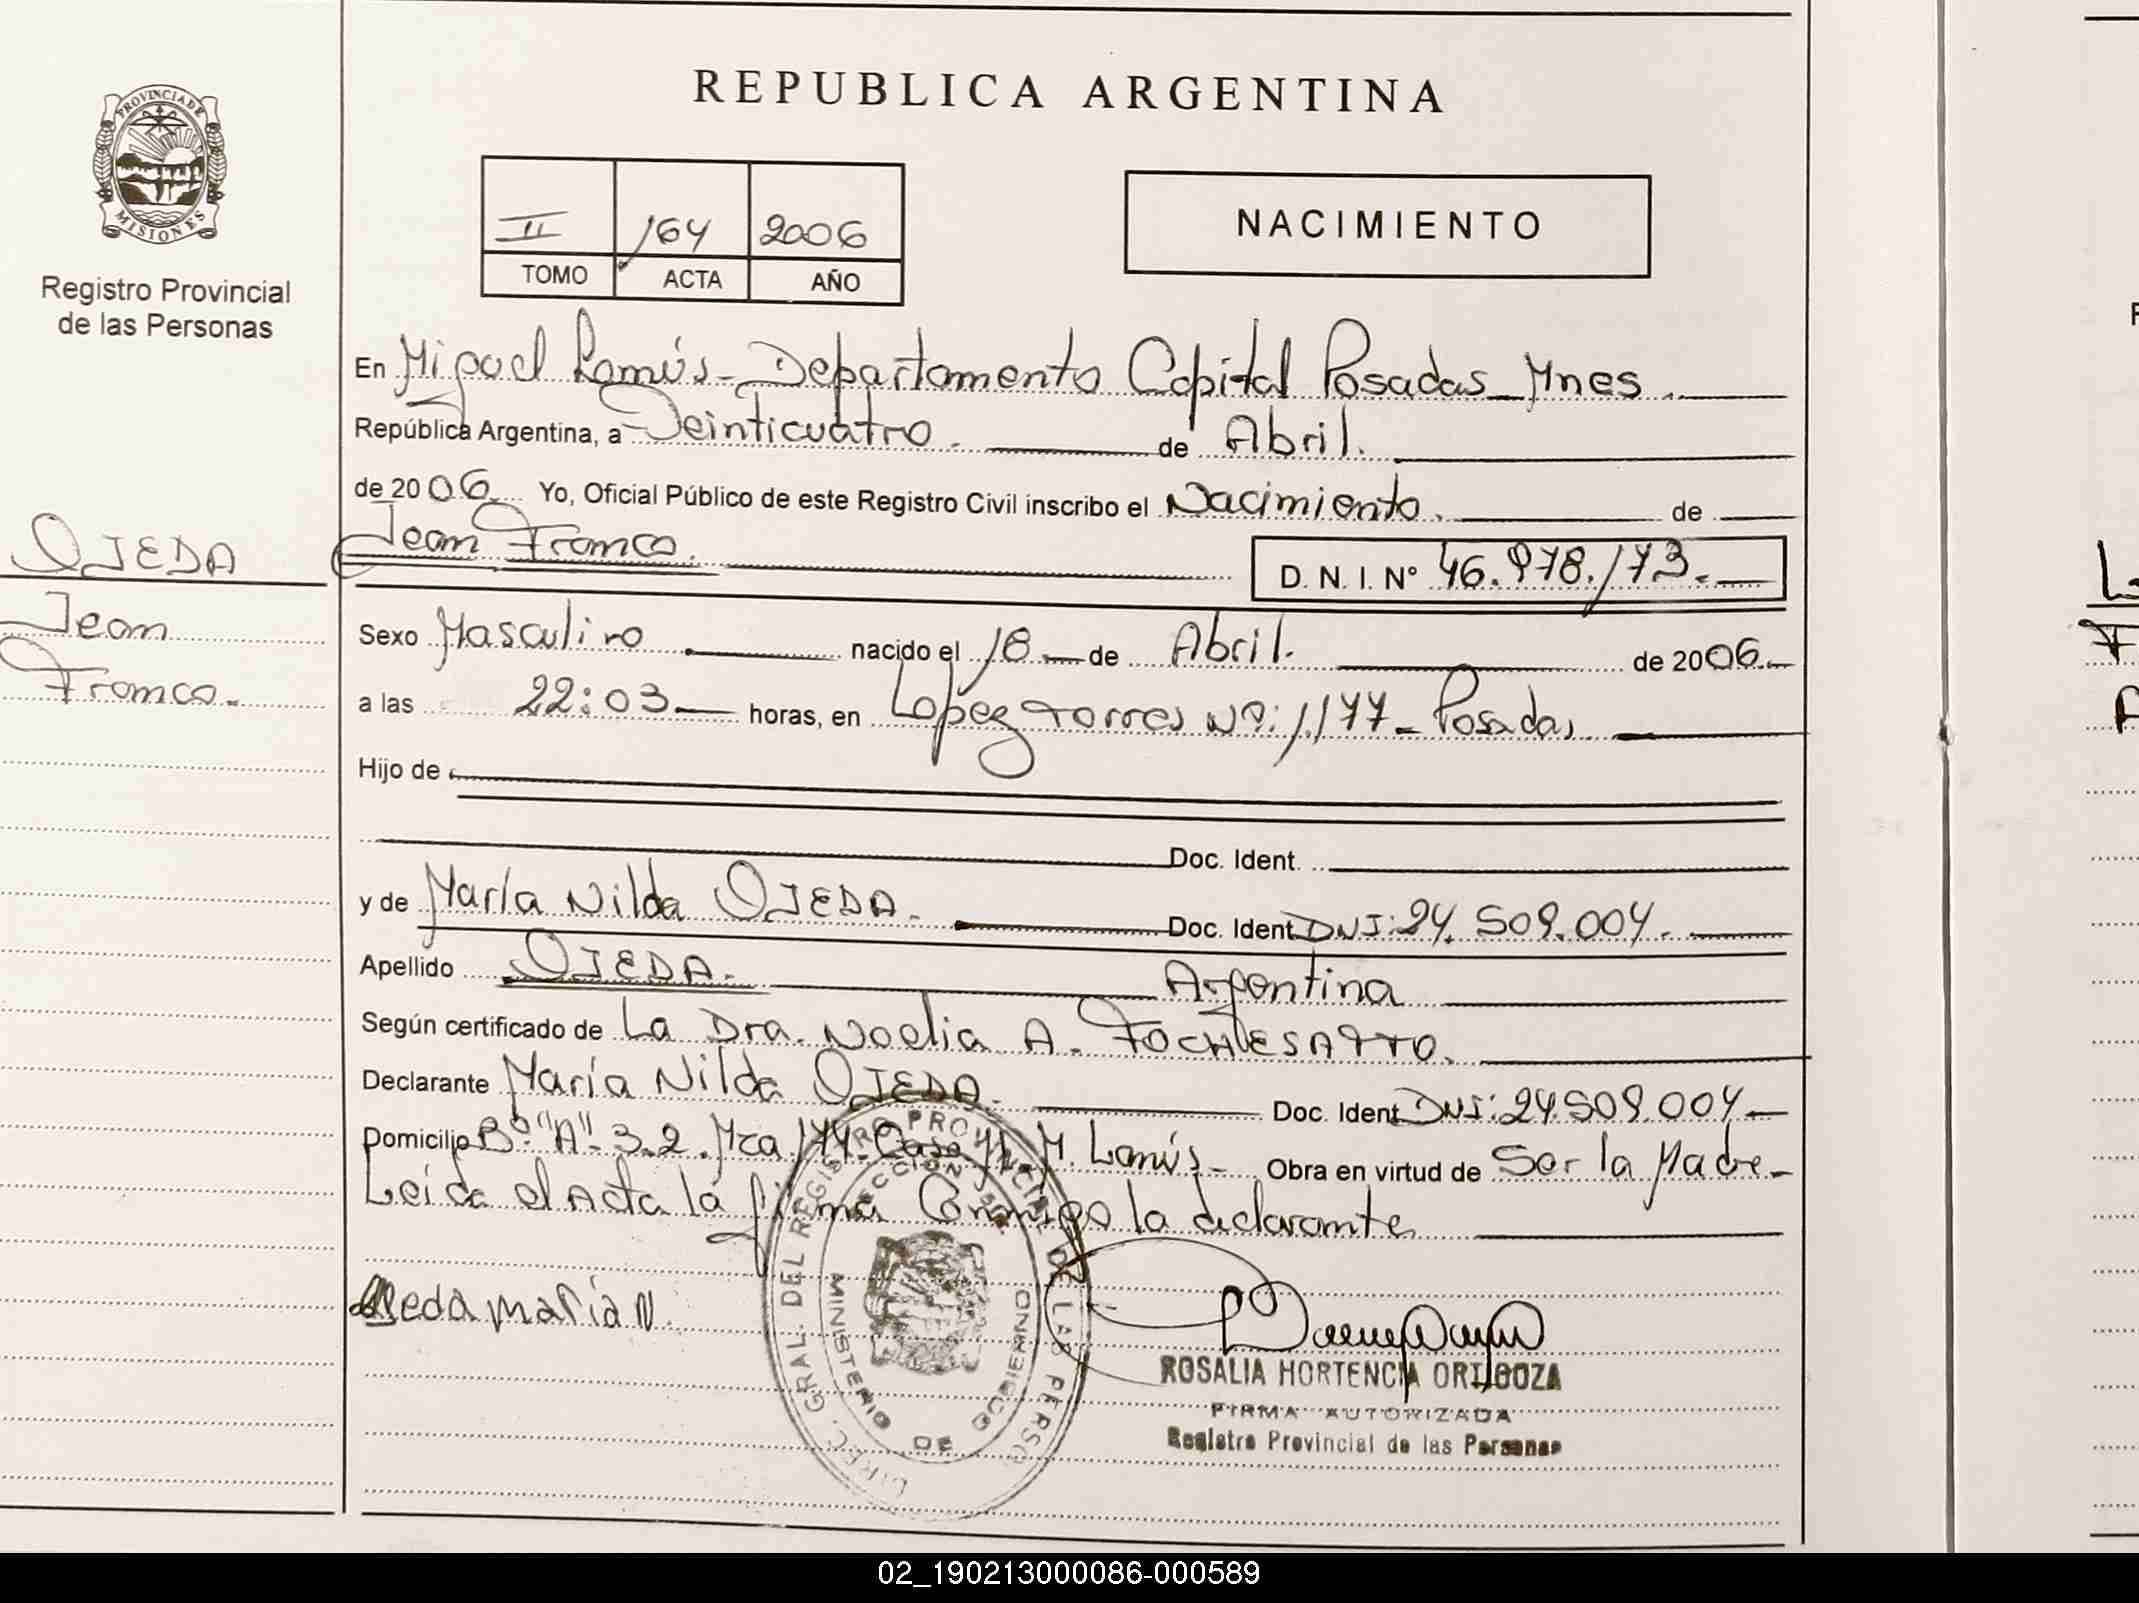 REPUBLICA ARGENTINA
PROVINCIA DE
MISIONES
Registro Provincial
de las Personas
II 164 2006
TOMO ACTA AÑO
NACIMIENTO
En Miguel Lanús - Departamento Capital Posadas Mnes.
República Argentina, a Veinticuatro. de Abril.
de 2006 Yo, Oficial Público de este Registro Civil inscribo el Nacimiento. de
Jean Franco.
D. N. I. Nº 46.978.173.
OJEDA
Jean
Franco.
Sexo Masculino nacido el 18 de Abril. de 2006.
a las 22:03 horas, en Lopez Torres Nº: 1.177 - Posadas
Hijo de
Doc. Ident.
y de María Nilda OJEDA. Doc. Ident DNI: 24.509.004.
Apellido OJEDA. Argentina
Según certificado de La Dra. Noelia A.
Declarante María Nilda OJEDA. Doc. Ident DNI: 24.509.004
Domicilio Bº "A" - 3.2. Mza 174. Casa M. Lanús - Obra en virtud de Ser la Madre -
Leida el Acta la firma Conmigo la declarante
Ojeda maria N.
DIREC. GRAL. DEL REGISTRO PROVINCIAL DE LAS PERSO
MINISTERIO DE GOBIERNO
ROSALIA HORTENCIA ORTIGOZA
FIRMA AUTORIZADA
Registro Provincial de las Personas
02_190213000086-000589